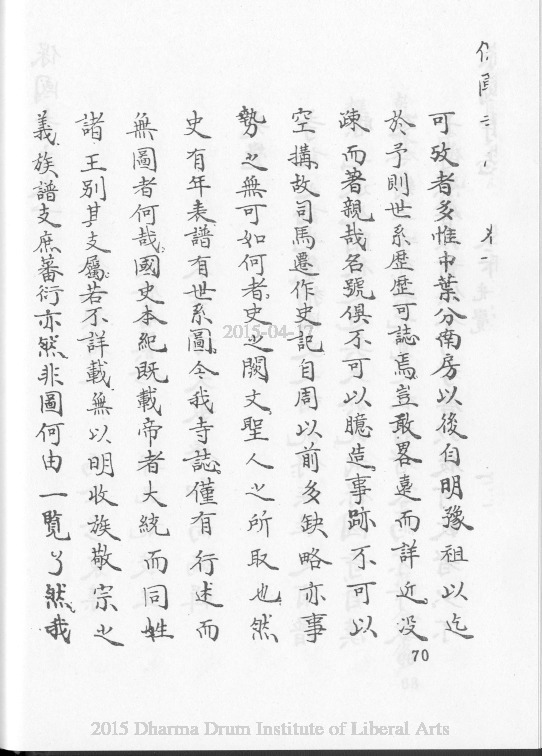 可攷者多惟中葉分南房以後自明豫祖以迄
於予則世系歷歷可誌焉豈敢畧遠而詳近没
踈而著親哉名號俱不可以臆造事跡不可以
空搆故司馬遷作史記自周以前多缺略亦事
勢之無可如何者史之闕文聖人之所取也然
史有年表譜有世系圖今我寺誌僅有行述而
無圖者何哉國史本紀既載帝者大統而同姓
諸王別其支屬若不詳載無以明收族敬宗之
義族譜支庶蕃衍亦然非圖何由一覽了然我
70
2015-04-17
2015 Dharma Drum Institute of Liberal Arts